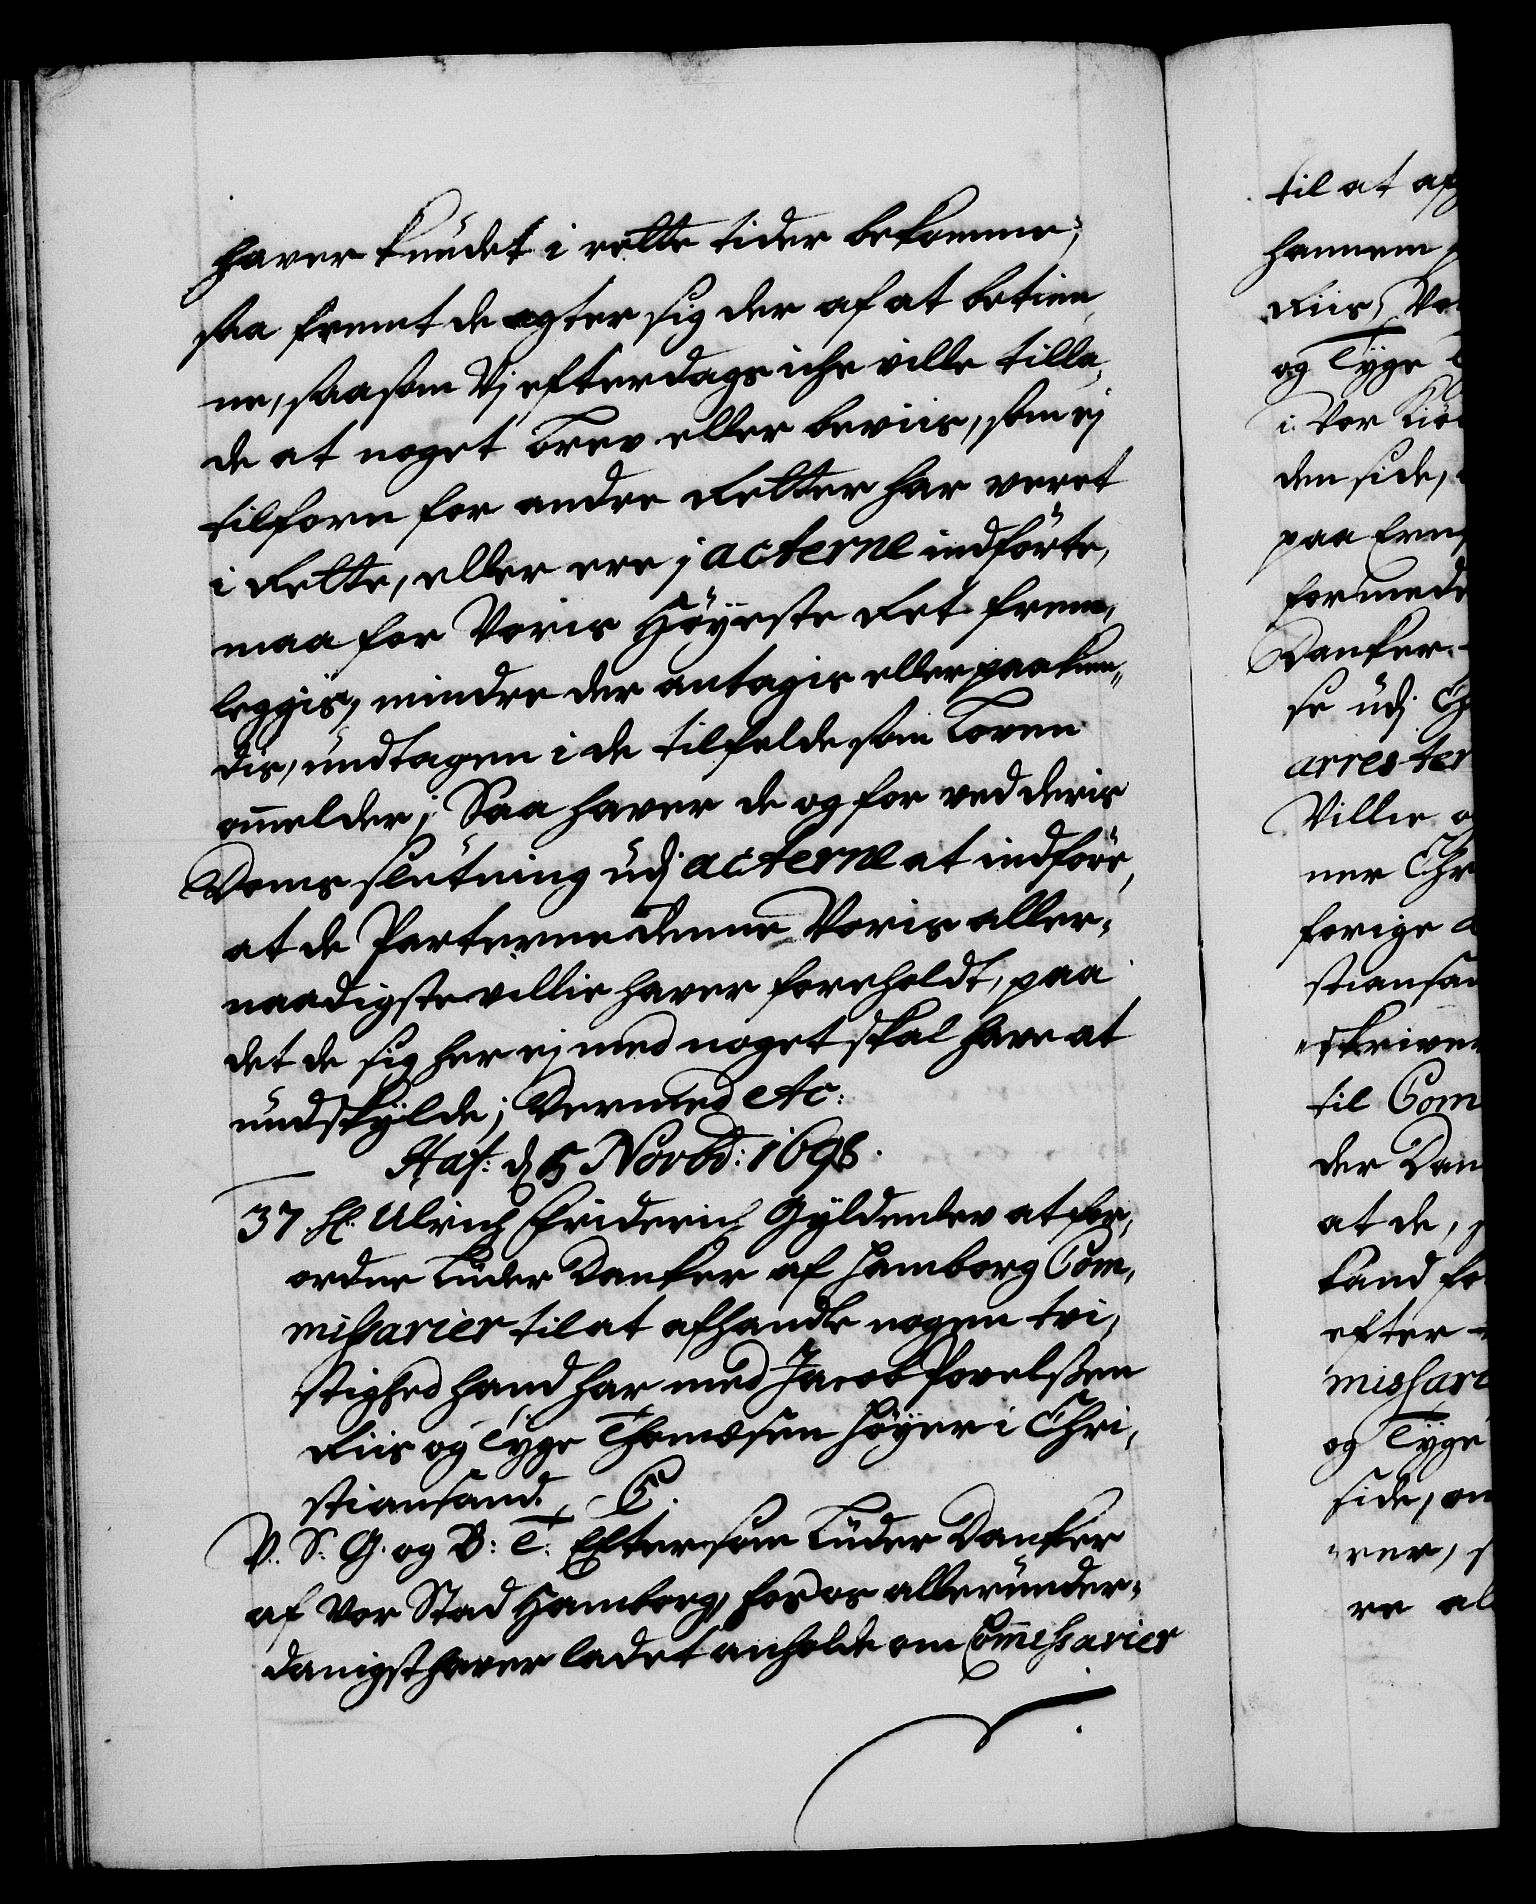 haver kundet i rette tider bekomme,
saa fremt de agter sig der af at betien,
ne, saasom Vj efterdags iche ville tilla,
de at noget brev eller beviis, som ej
tilforn for andre Retter har veret
i Rette, eller ere j acterne indförte,
maa for Voris Höyeste Ret frem,
leggis, mindre der antagis eller paakien,
dis, undtagen i de tilfelde som Loven
ommelder; Saa haver de og for ved deris
Doms slutning udj acterne at indföre,
at de Parterne denne Voris aller,
naadigste villie haver foreholdt, paa
det de sig her ej med noget skal have at
undskylde; Dermed etc:
Haf: d 5 Novbr: 1698.
37 H. Ulrich Friderich Gyldenlev at for,
ordne Lüder Danker af Hamborg Com,
missarier til at afhandle nogen tvi,
stighed hand har med Jacob Povelssen
Riis og Tyge Thomæsen Höyer i Chri,
stiansand. C.
V. S. G. og B: T: Eftersom Lüder Danker
af Vor Stad Hamborg, hos os allerunder,
danigst haver ladet anholde om Commissarier
til at af
hannem
Riis, Vo
og Tyge
i Vor Kiö
den side,
paa
formede
Danker
se udj
arrester
Villie
ner Chr
forige
stiansan
skriver
til Com
der Dan
at de,
kand fo
efter
missari
og Tyge
side, om
rer, s
re al